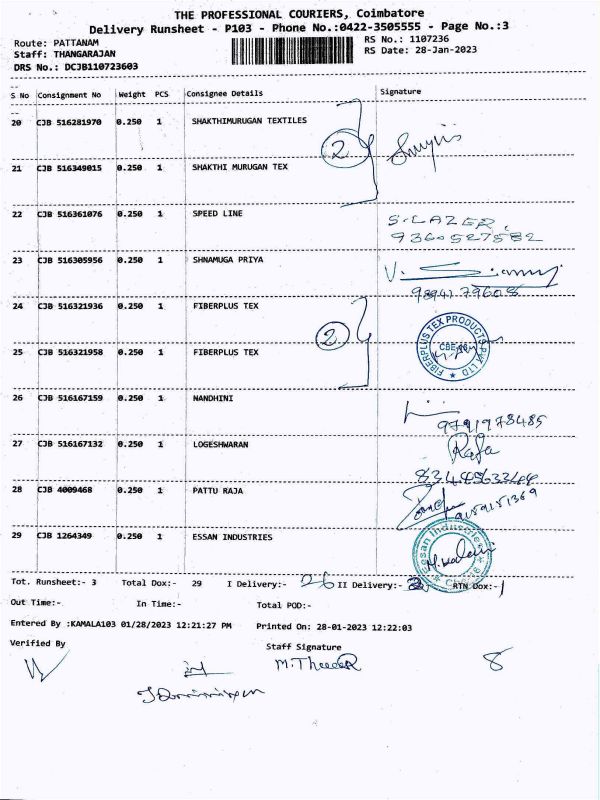 THE PROFESSIONAL COURIERS, Coimbatore
Delivery Runsheet - P103 - Phone No.:0422-3505555 - Page No.:3
Route: PATTANAM RS No.: 1107236
Staff: THANGARAJAN RS Date: 28-Jan-2023
DRS No.: DCJB110723603
S No Consignment No Weight PCS Consignee Details Signature
20 CJB 516281970 0.250 1 SHAKTHIMURUGAN TEXTILES
2
21 CJB 516349015 0.250 1 SHAKTHI MURUGAN TEX
22 CJB 516361076 0.250 1 SPEED LINE S.LAZER.
9360527582
23 CJB 516305956 0.250 1 SHNAMUGA PRIYA
9894179608
24 CJB 516321936 0.250 1 FIBERPLUS TEX
2 FIBERPLUS TEX PRODUCTS PVT LTD
25 CJB 516321958 0.250 1 FIBERPLUS TEX
26 CJB 516167159 0.250 1 NANDHINI
9791978485
27 CJB 516167132 0.250 1 LOGESHWARAN Raja
28 CJB 4009468 0.250 1 PATTU RAJA
29 CJB 1264349 0.250 1 ESSAN INDUSTRIES Essan Industries
Tot. Runsheet:- 3 Total Dox:- 29 I Delivery:- 26 II Delivery:- 2 RTN Dox:- 1
Out Time:- In Time:- Total POD:-
Entered By :KAMALA103 01/28/2023 12:21:27 PM Printed On: 28-01-2023 12:22:03
Verified By Staff Signature
8